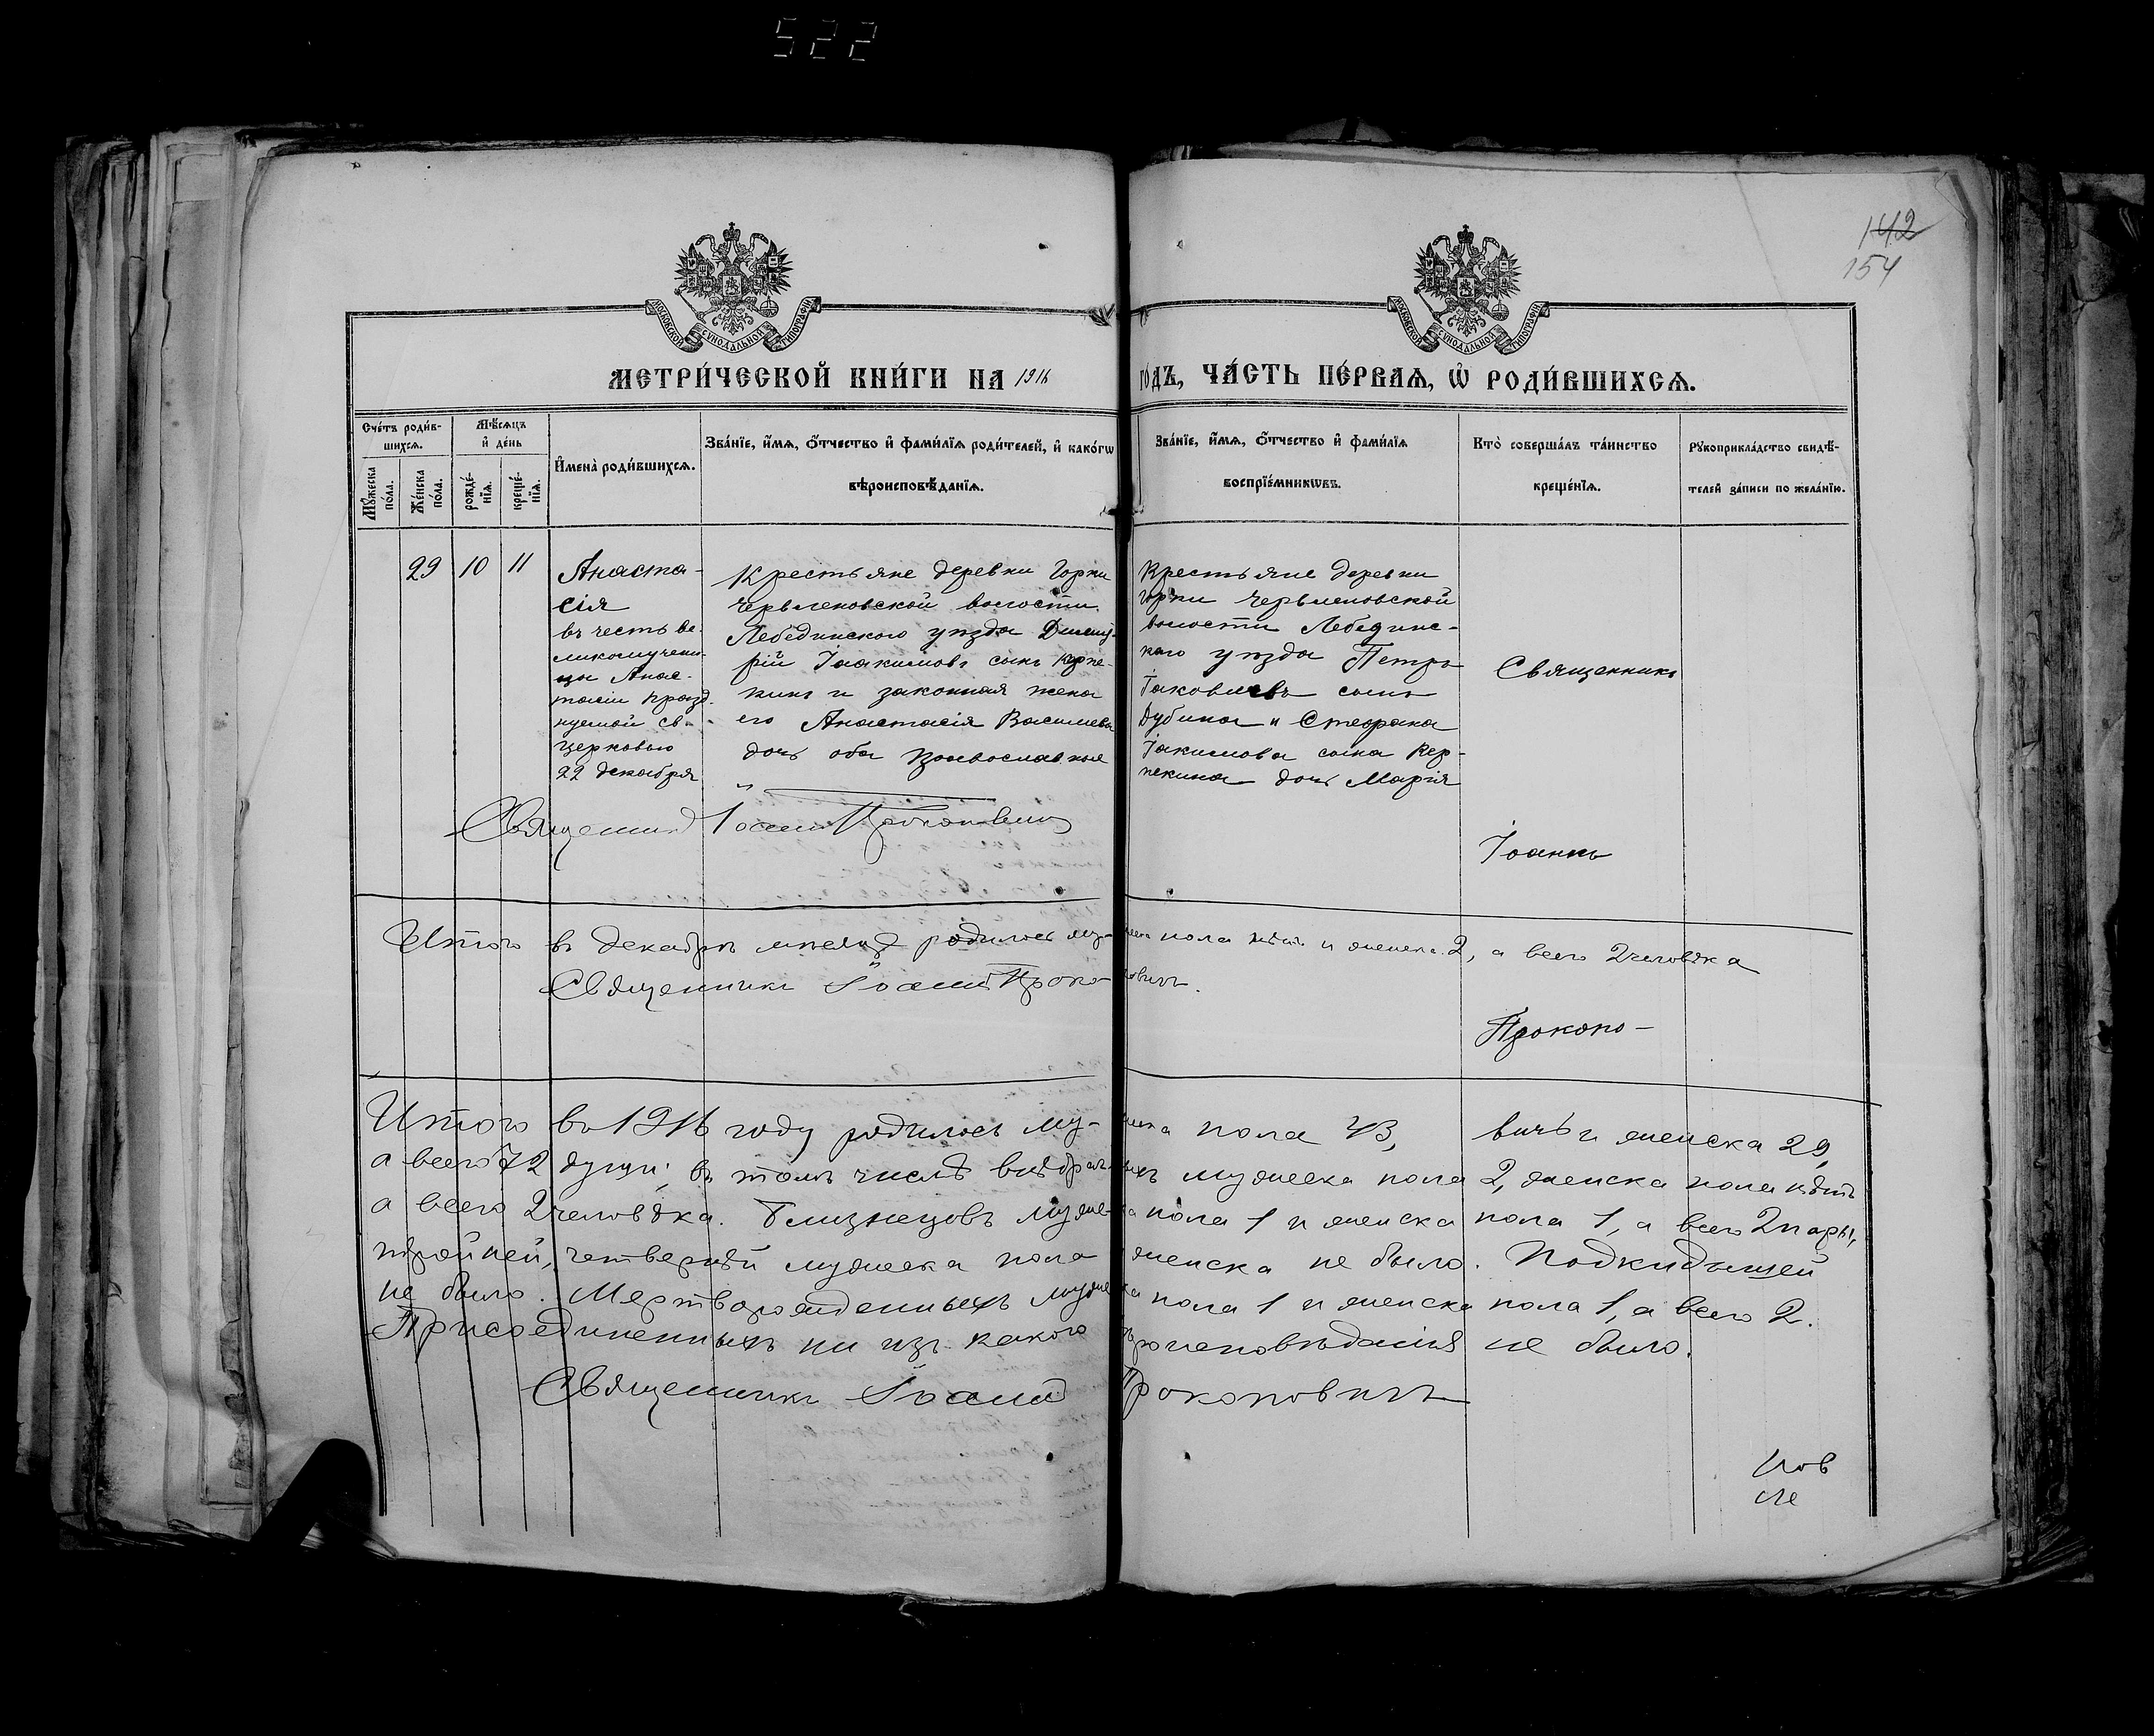 522
142
154
МОСКОВСКОЙ СѴНОДАЛЬНОЙ ТИПОГРАФІИ
МОСКОВСКОЙ СѴНОДАЛЬНОЙ ТИПОГРАФІИ
МЕТРИ́ЧЕСКОЙ КНИ́ГИ НА 1916
ГО́ДЪ, ЧА́СТЬ ПЕ́РВАѦ, Ѡ҆ РОДИ́ВШИХСѦ.
Сче́тъ роди́в-
шихсѧ.
Мѣ́сѧцъ
и҆ де́нь
Мꙋ́жеска
по́ла.
Же́нска
по́ла.
рожде́-
нїѧ.
креще́-
нїѧ.
И҆мена̀ роди́вшихсѧ.
Зва́нїе, и҆́мѧ, ѻ҆́тчество и҆ фами́лїѧ роди́телей, и҆ како́гѡ
вѣроисповѣ́данїѧ.
Зва́нїе, и҆́мѧ, ѻ҆́тчество и҆ фами́лїѧ
воспрїе́мникѡвъ.
Кто̀ соверша́лъ та́инство
креще́нїѧ.
Рꙋкоприкла́дство свидѣ́-
телей за́писи по жела́нїю.
29 10 11
Анаста-
сія
въ честь ве-
ликомучени-
цы Анас-
тасіи празд-
нуемой св.
церковью
22 декабря
Крестьяне деревни Горки
Червленовской волости
Лебединского уѣзда Димит-
рій Іоакимовъ сынъ
и законная жена
его Анастасія Васильева
дочь оба православные
Священникъ Іоаннъ Прокоповичъ
Крестьяне деревни
Горки Червленовской
волости Лебединс-
каго уѣзда Петръ
Іаковлевъ сынъ
Дубина и Стефана
Іакимова сына Кер-
некина дочь Марія
Священникъ
Іоаннъ
Прокопо-
вичъ
Итого въ декабрѣ мѣсяцѣ родилось муж-
еска пола нѣтъ и женска 2, а всего 2 человѣка
Священникъ Іоаннъ Прокоповичъ.
Итого въ 1916 году родилось мужеска пола 43, и женска 29,
а всего 72 души; въ томъ числѣ внѣбрачныхъ мужеска пола 2, женска пола нѣтъ
а всего 2 человѣка. Близнецовъ мужеска пола 1 и женска пола 1, а всего 2 пары,
тройней, четверней мужеска пола женска не было. Подкидышей
не было. Мертворожденныхъ мужеска пола 1 и женска пола 1, а всего 2.
Присоединенныхъ ни изъ какого вѣроисповѣданія не было.
Священникъ Іоаннъ Прокоповичъ